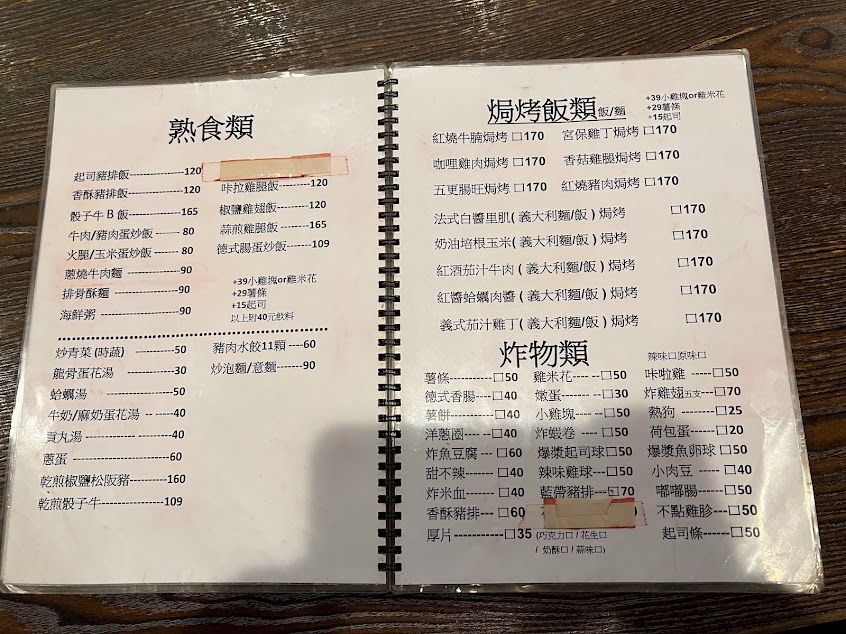 熟食類
起司豬排飯--------------120
香酥豬排飯--------------120
骰子牛B飯--------------165
牛肉/豬肉蛋炒飯------ 80
火腿/玉米蛋炒飯------ 80
蔥燒牛肉麵 --------------90
排骨酥麵 ----------------90
海鮮粥 -------------------90
咔拉雞腿飯--------120
椒鹽雞翅飯--------120
蒜煎雞腿飯--------165
德式腸蛋炒飯------109
+39小雞塊or雞米花
+29薯條
+15起司
以上附40元飲料
炒青菜 (時蔬) -----------50
龍骨蛋花湯 -------------30
蛤蠣湯 -----------------50
牛奶/麻奶蛋花湯 -- -----40
貢丸湯 -------------------40
蔥蛋----------------------60
乾煎椒鹽松阪豬----------160
乾煎骰子牛---------------109
豬肉水餃11顆 ----60
炒泡麵/意麵-------90
焗烤飯類飯/麵
+39小雞塊or雞米花
+29薯條
+15起司
紅燒牛腩焗烤 □170 宮保雞丁焗烤 □170
咖哩雞肉焗烤 □170 香菇雞腿焗烤 □170
五更腸旺焗烤 □170 紅燒豬肉焗烤 □170
法式白醬里肌( 義大利麵/飯 ) 焗烤 □170
奶油培根玉米( 義大利麵/飯 ) 焗烤 □170
紅酒茄汁牛肉 ( 義大利麵/飯 ) 焗烤 □170
紅醬蛤蠣肉醬 ( 義大利麵/飯 ) 焗烤 □170
義式茄汁雞丁 ( 義大利麵/飯 ) 焗烤 □170
炸物類
辣味□原味□
薯條-----------□50 雞米花---- --□50 咔啦雞 -----□50
德式香腸----□40 嫩蛋---------□30 炸雞翅五支---□70
薯餅----------□40 小雞塊-----□50 熱狗 --------□25
洋蔥圈---- --□40 炸蝦卷 ----□50 荷包蛋------□20
炸魚豆腐 ---□60 爆漿起司球□50 爆漿魚卵球 □50
甜不辣-------□40 辣味雞球---□50 小肉豆 -----□40
炸米血-------□40 藍帶豬排---□70 嘟嘟腸-----□50
香酥豬排---□60 不點雞胗---□50
厚片-----------□35 (巧克力□ / 花生□ / 奶酥□ / 蒜味□) 起司條------□50